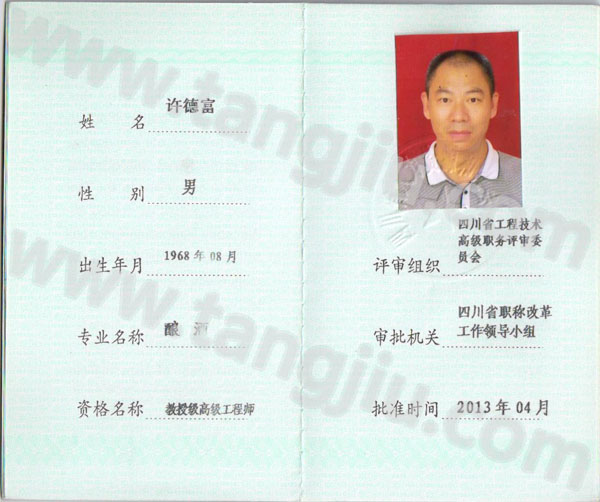 姓 名 许德富
性 别 男
出生年月 1968 年 08 月
专业名称 酿 酒
资格名称 教授级高级工程师
四川省工程技术
高级职务评审委
评审组织 员会
四川省职称改革
审批机关 工作领导小组
批准时间 2013 年 04 月
www.tangjiu.com
www.tangjiu.com
www.tangjiu.com